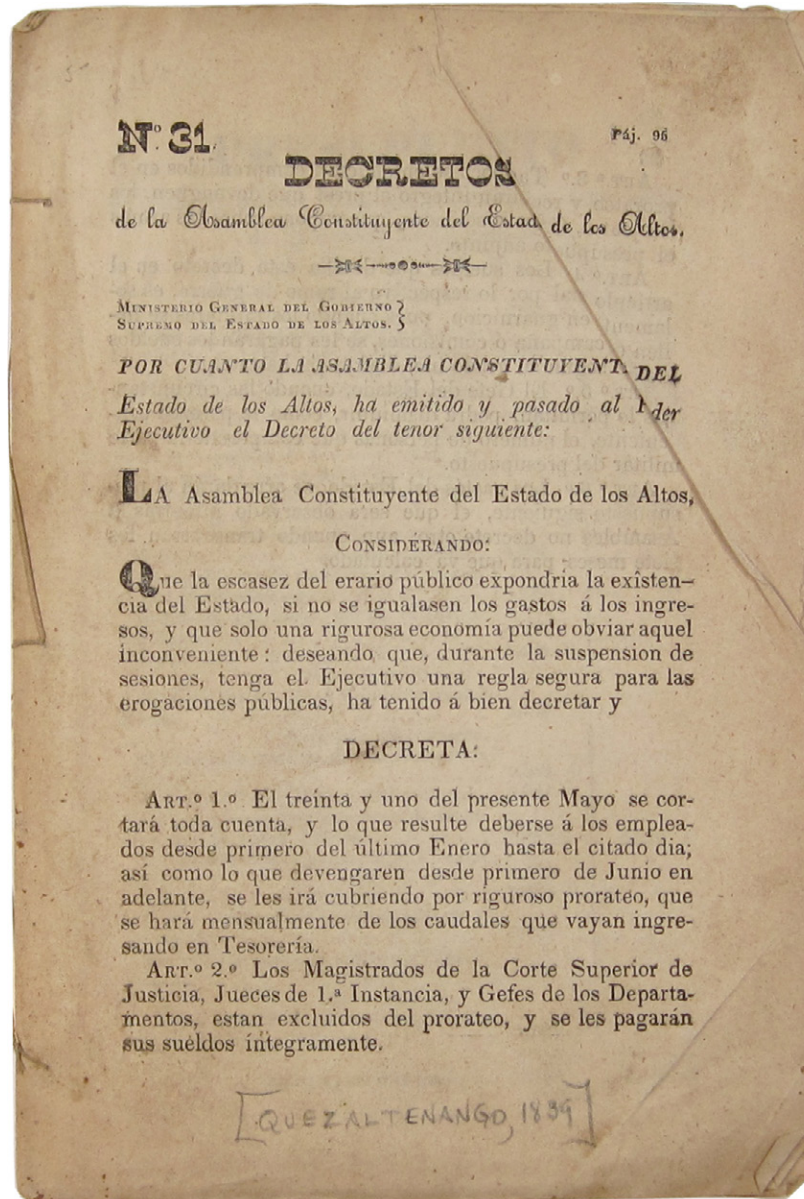 Nº. 31.
Páj. 96
DECRETOS
de la Asamblea Constituyente del Estad de los Altos.
MINISTERIO GENERAL DEL GOBIERNO
SUPREMO DEL ESTADO DE LOS ALTOS.
POR CUANTO LA ASAMBLEA CONSTITUYENT. DEL
Estado de los Altos, ha emitido y pasado al der
Ejecutivo el Decreto del tenor siguiente:
LA Asamblea Constituyente del Estado de los Altos,
CONSIDERANDO:
Que la escasez del erario público expondria la existen-
cia del Estado, si no se igualasen los gastos á los ingre-
sos, y que solo una rigurosa economía puede obviar aquel
inconveniente: deseando que, durante la suspension de
sesiones, tenga el Ejecutivo una regla segura para las
erogaciones públicas, ha tenido á bien decretar y
DECRETA:
ART.º 1.º El treinta y uno del presente Mayo se cor-
tará toda cuenta, y lo que resulte deberse á los emplea-
dos desde primero del último Enero hasta el citado dia;
así como lo que devengaren desde primero de Junio en
adelante, se les irá cubriendo por riguroso prorateo, que
se hará mensualmente de los caudales que vayan ingre-
sando en Tesorería.
ART.º 2.º Los Magistrados de la Corte Superior de
Justicia, Jueces de 1.ª Instancia, y Gefes de los Departa-
mentos, estan excluidos del prorateo, y se les pagarán
sus sueldos íntegramente.
[QUEZALTENANGO, 1839]